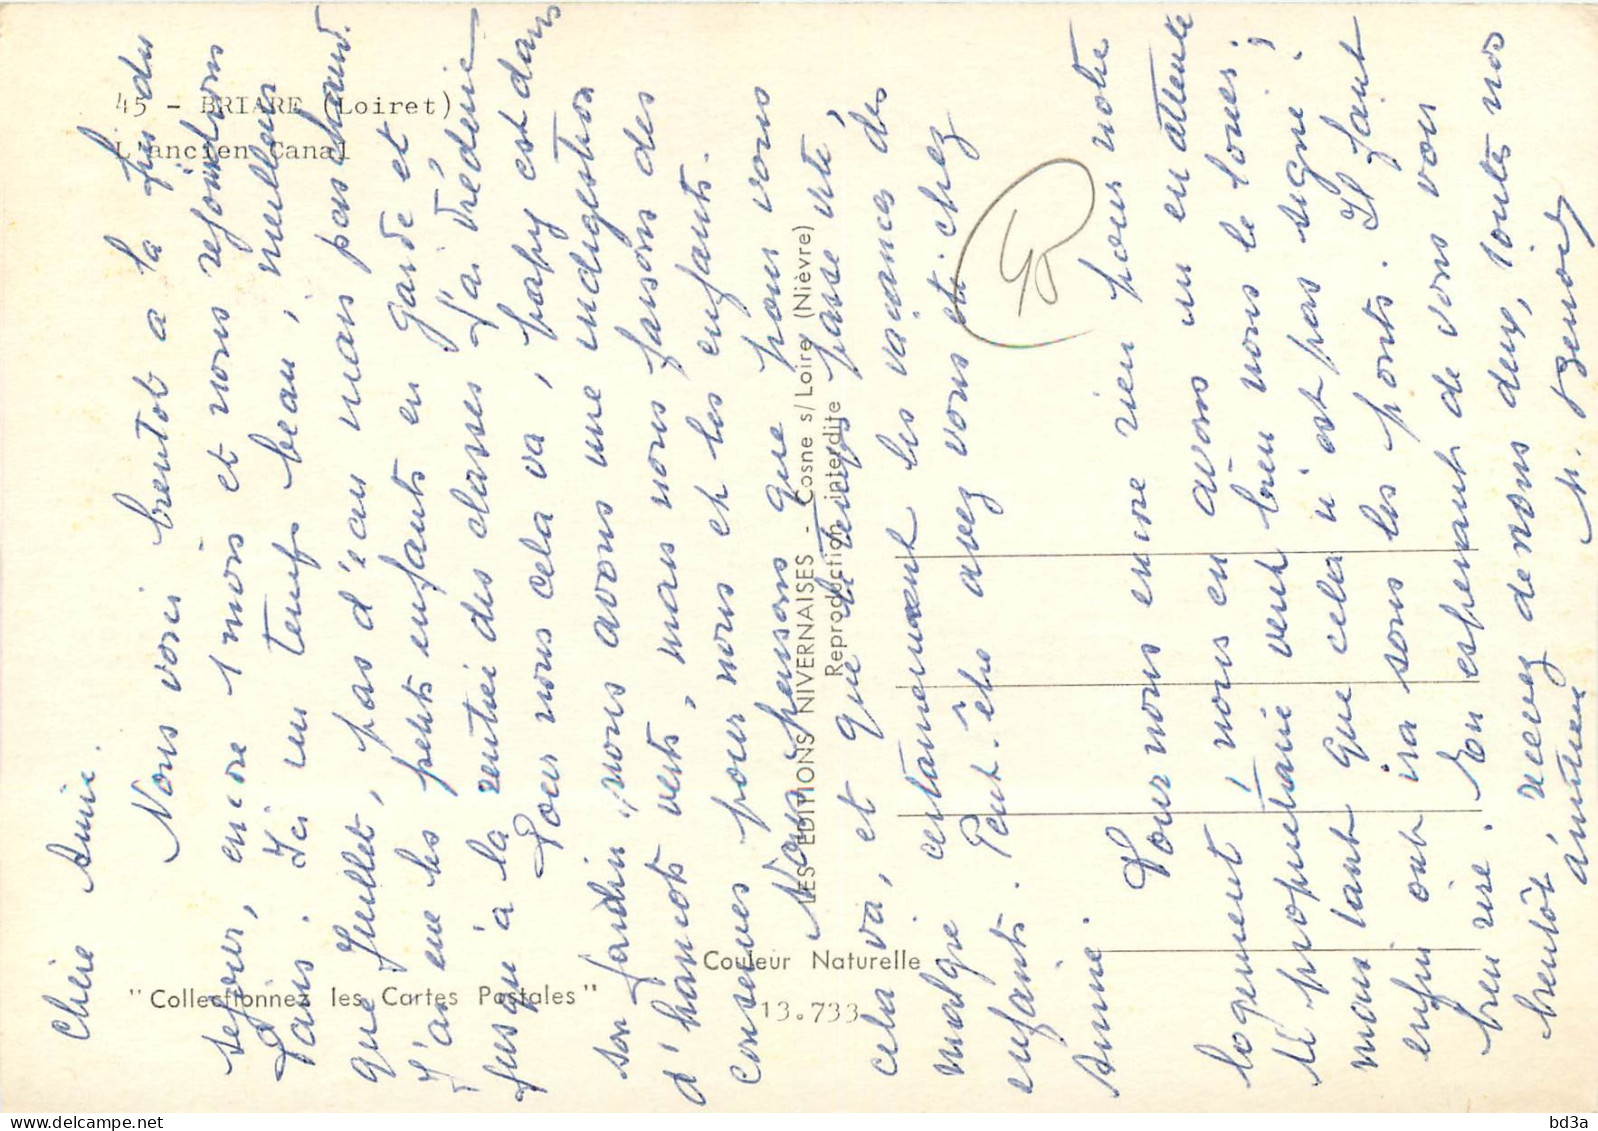 45 - BRIARE (Loiret)
L'ancien Canal
"Collectionnez les Cartes Postales"
Couleur Naturelle
13.733
LES EDITIONS NIVERNAISES - Cosne s/Loire (Nièvre)
Reproduction interdite
Chère Annie.
Nous voici bientot a la fin du
sejour, encore 1 mois et nous rejoindrons
Paris. Ici un temps beau, meilleur
que Juillet, pas d'eau mais pas chaud.
J'ai eu les petits enfants en garde et
jusqu'à la rentrée des classes j'ai Fréderic
Pour nous cela va, papy est dans
son jardin, nous avons une indigestion
d'haricots verts, mais nous faisons des
conserves pour nous et les enfants.
Nous pensons que pour vous
cela va, et que le temps passe vite,
malgré certainement les vacances des
enfants. Peut-être avez vous été chez
Annie.
Pour nous encore rien pour notre
logement, nous en avons un en attente
si propriétaire veut bien nous le louer;
mais tant que cela n'est pas signé!
enfin on ira sous les ponts. Il faut
bien rire. En esperant de vous voir
bientôt, recevez de nous deux, toutes nos
amitiés